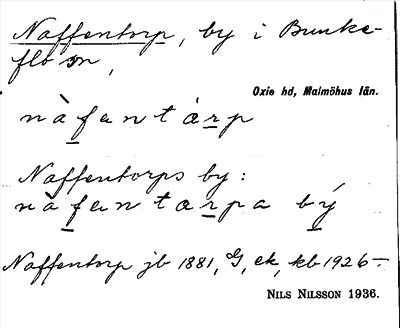 Naffentorp, by i Bunke-
flo sn,
Oxie hd, Malmöhus län.
nàfentárp
Naffentorps by:
nàfentærpa bý
Naffentorp jb 1881, G, ek, kb 1926-.
NILS NILSSON 1936.